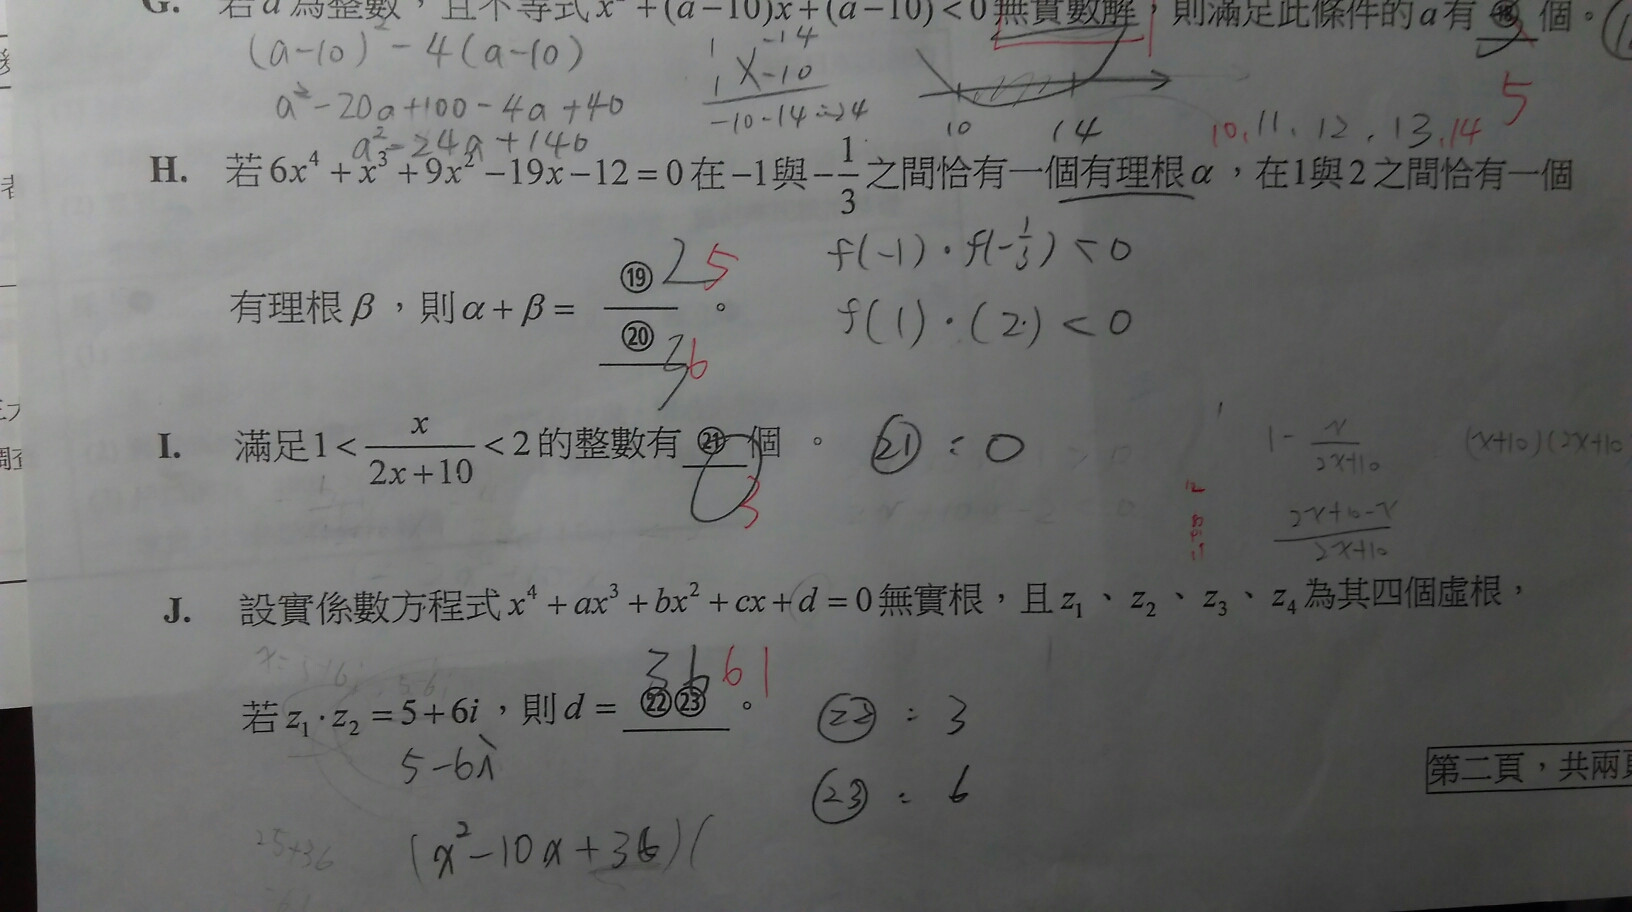 G. 若a為整數，且不等式x²+(a−10)x+(a−10)<0無實數解，則滿足此條件的a有⑱個。
(a-10)²-4(a-10)
a²-20a+100-4a+40
a²-24a+140
1 -14
1 X -10
-10-14=>4
10 14
5
10, 11, 12, 13, 14
H. 若6x⁴+x³+9x²−19x−12=0在−1與−1/3之間恰有一個有理根α，在1與2之間恰有一個
有理根β，則α+β= ⑲/⑳ 。
2 5
3 6
f(-1)·f(-1/3)<0
f(1)·(2)<0
I. 滿足1<x/(2x+10)<2的整數有㉑個。
0
3
㉑:0
1-x/(2x+10)
(x+10)(2x+10
(2x+10-x)/(2x+10)
J. 設實係數方程式x⁴+ax³+bx²+cx+d=0無實根，且z₁、z₂、z₃、z₄為其四個虛根，
36 61
若z₁·z₂=5+6i，則d=㉒㉓。
㉒:3
5-6i
㉓:6
(x²-10x+36)(
25+36
61
第二頁，共兩頁